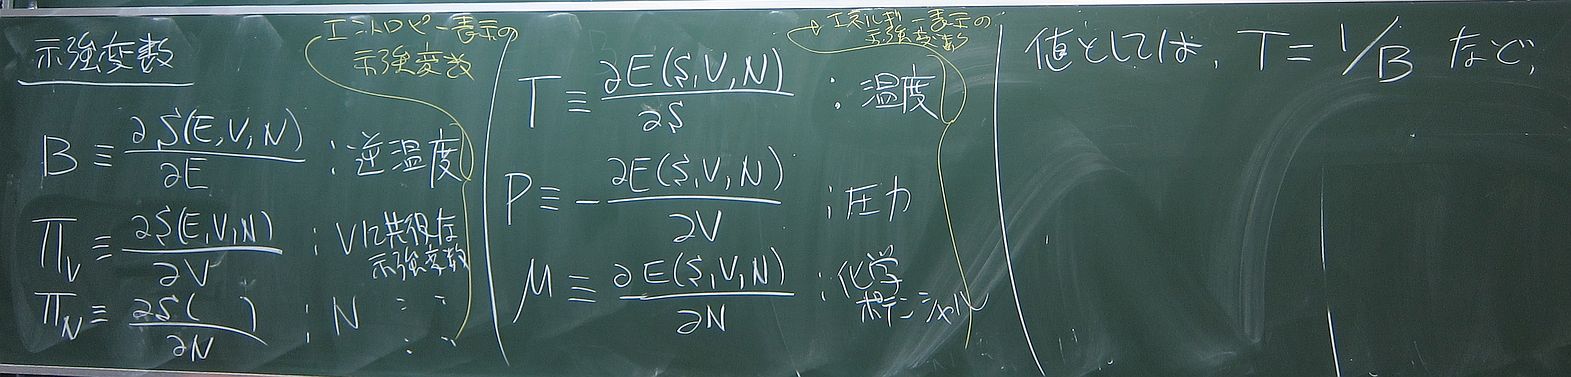 示強変数
エントロピー表示の
示強変数
B ≡ ∂S(E,V,N)/∂E ; 逆温度
Π_V ≡ ∂S(E,V,N)/∂V ; Vに共役な
示強変数
Π_N ≡ ∂S( )/∂N ; N 〃 〃
エネルギー表示の
示強変数
T ≡ ∂E(S,V,N)/∂S ; 温度
P ≡ -∂E(S,V,N)/∂V ; 圧力
μ ≡ ∂E(S,V,N)/∂N ; 化学
ポテンシャル
値としては, T = 1/B など,